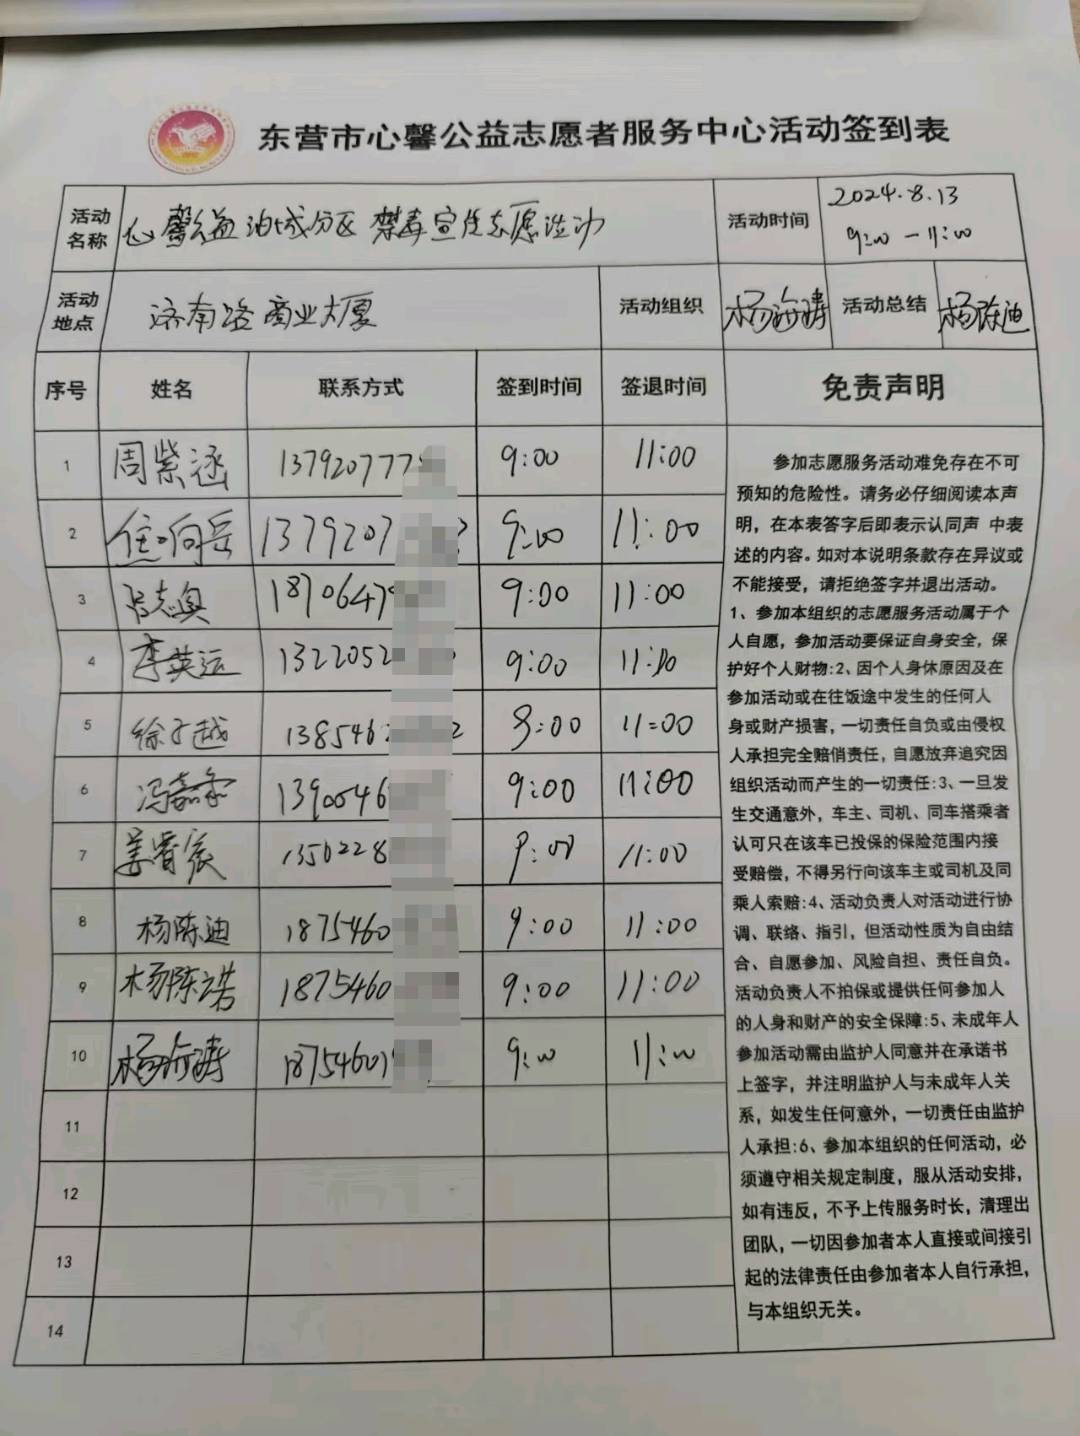 东营市心馨公益志愿者服务中心活动签到表
活动名称 心馨公益油城分区禁毒宣传志愿活动 活动时间 2024.8.13 9:00-11:00
活动地点 济南路商业大厦 活动组织 杨海涛 活动总结 杨陈迪
序号 姓名 联系方式 签到时间 签退时间 免责声明
1 周紫涵 137920777 9:00 11:00
2 向岳 1379207 9:00 11:00
3 志奥 1870647 9:00 11:00
4 李英运 1322052 9:00 11:00
5 徐子越 138546 9:00 11:00
6 冯嘉 1390546 9:00 11:00
7 姜睿宸 1350228 9:00 11:00
8 杨陈迪 1875460 9:00 11:00
9 杨陈诺 1875460 9:00 11:00
10 杨海涛 1875460 9:00 11:00
11
12
13
14
参加志愿服务活动难免存在不可
预知的危险性。请务必仔细阅读本声
明，在本表答字后即表示认同声 中表
述的内容。如对本说明条款存在异议或
不能接受，请拒绝签字并退出活动。
1、参加本组织的志愿服务活动属于个
人自愿，参加活动要保证自身安全，保
护好个人财物:2、因个人身休原因及在
参加活动或在往饭途中发生的任何人
身或财产损害，一切责任自负或由侵权
人承担完全赔俏责任，自愿放弃追究因
组织活动而产生的一切责任:3、一旦发
生交通意外，车主、司机、同车搭乘者
认可只在该车已投保的保险范围内接
受赔偿，不得另行向该车主或司机及同
乘人索赔:4、活动负责人对活动进行协
调、联络、指引，但活动性质为自由结
合、自愿参加、风险自担、责任自负。
活动负责人不拍保或提供任何参加人
的人身和财产的安全保障:5、未成年人
参加活动需由监护人同意并在承诺书
上签字，并注明监护人与未成年人关
系，如发生任何意外，一切责任由监护
人承担:6、参加本组织的任何活动，必
须遵守相关规定制度，服从活动安排，
如有违反，不予上传服务时长，清理出
团队，一切因参加者本人直接或间接引
起的法律责任由参加者本人自行承担，
与本组织无关。